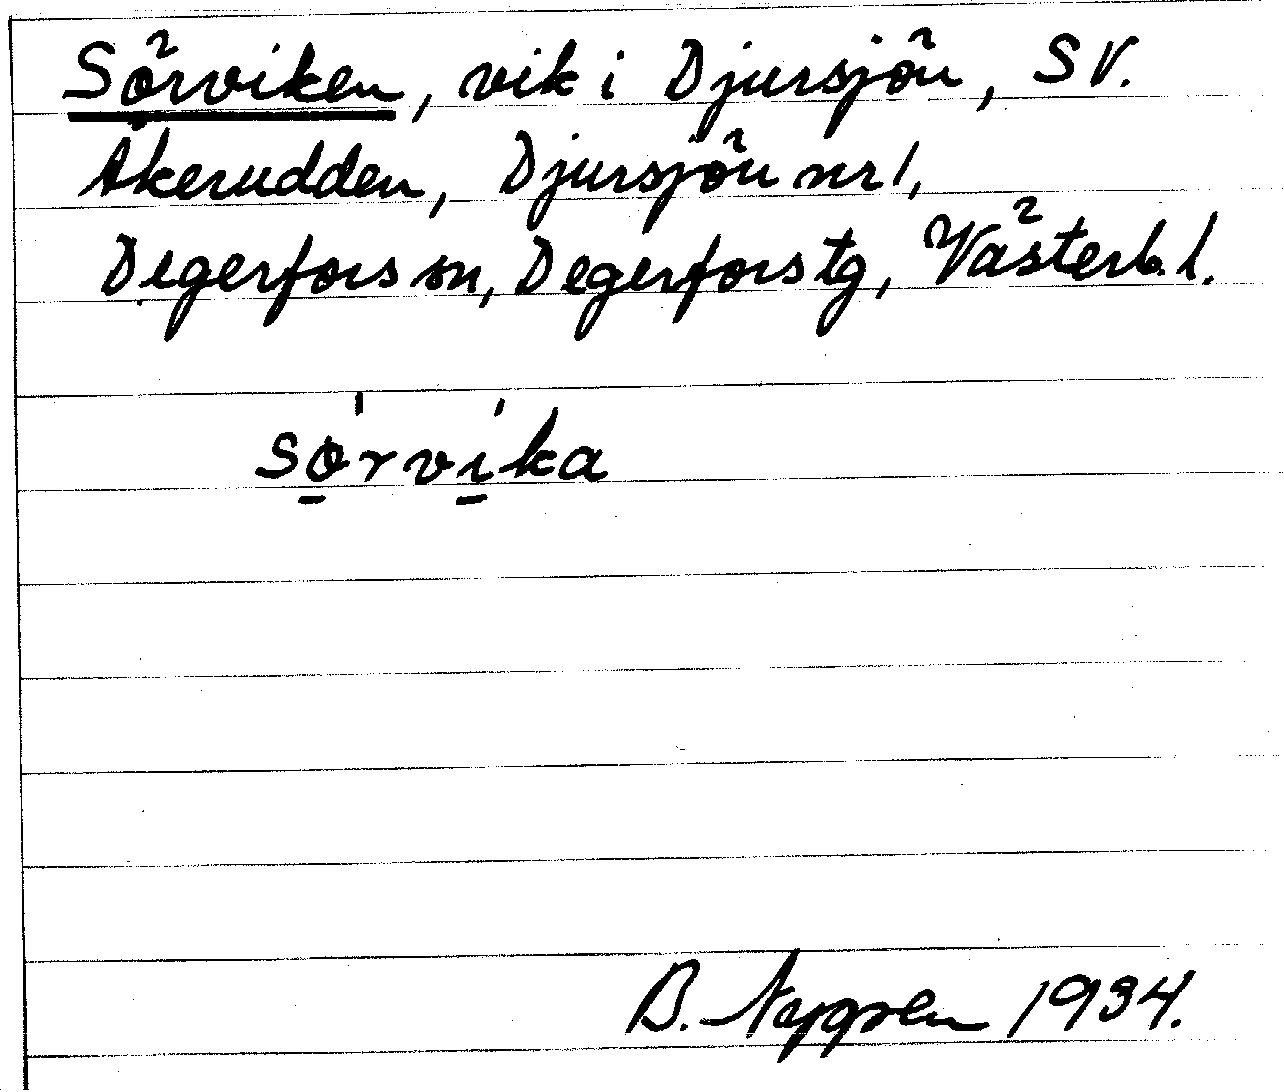 Sörviken, vik i Djursjön, SV.
Åkerudden, Djursjön nr 1,
Degerfors sn, Degerfors tg, Västerb. l.
sörvika
B. 1934.